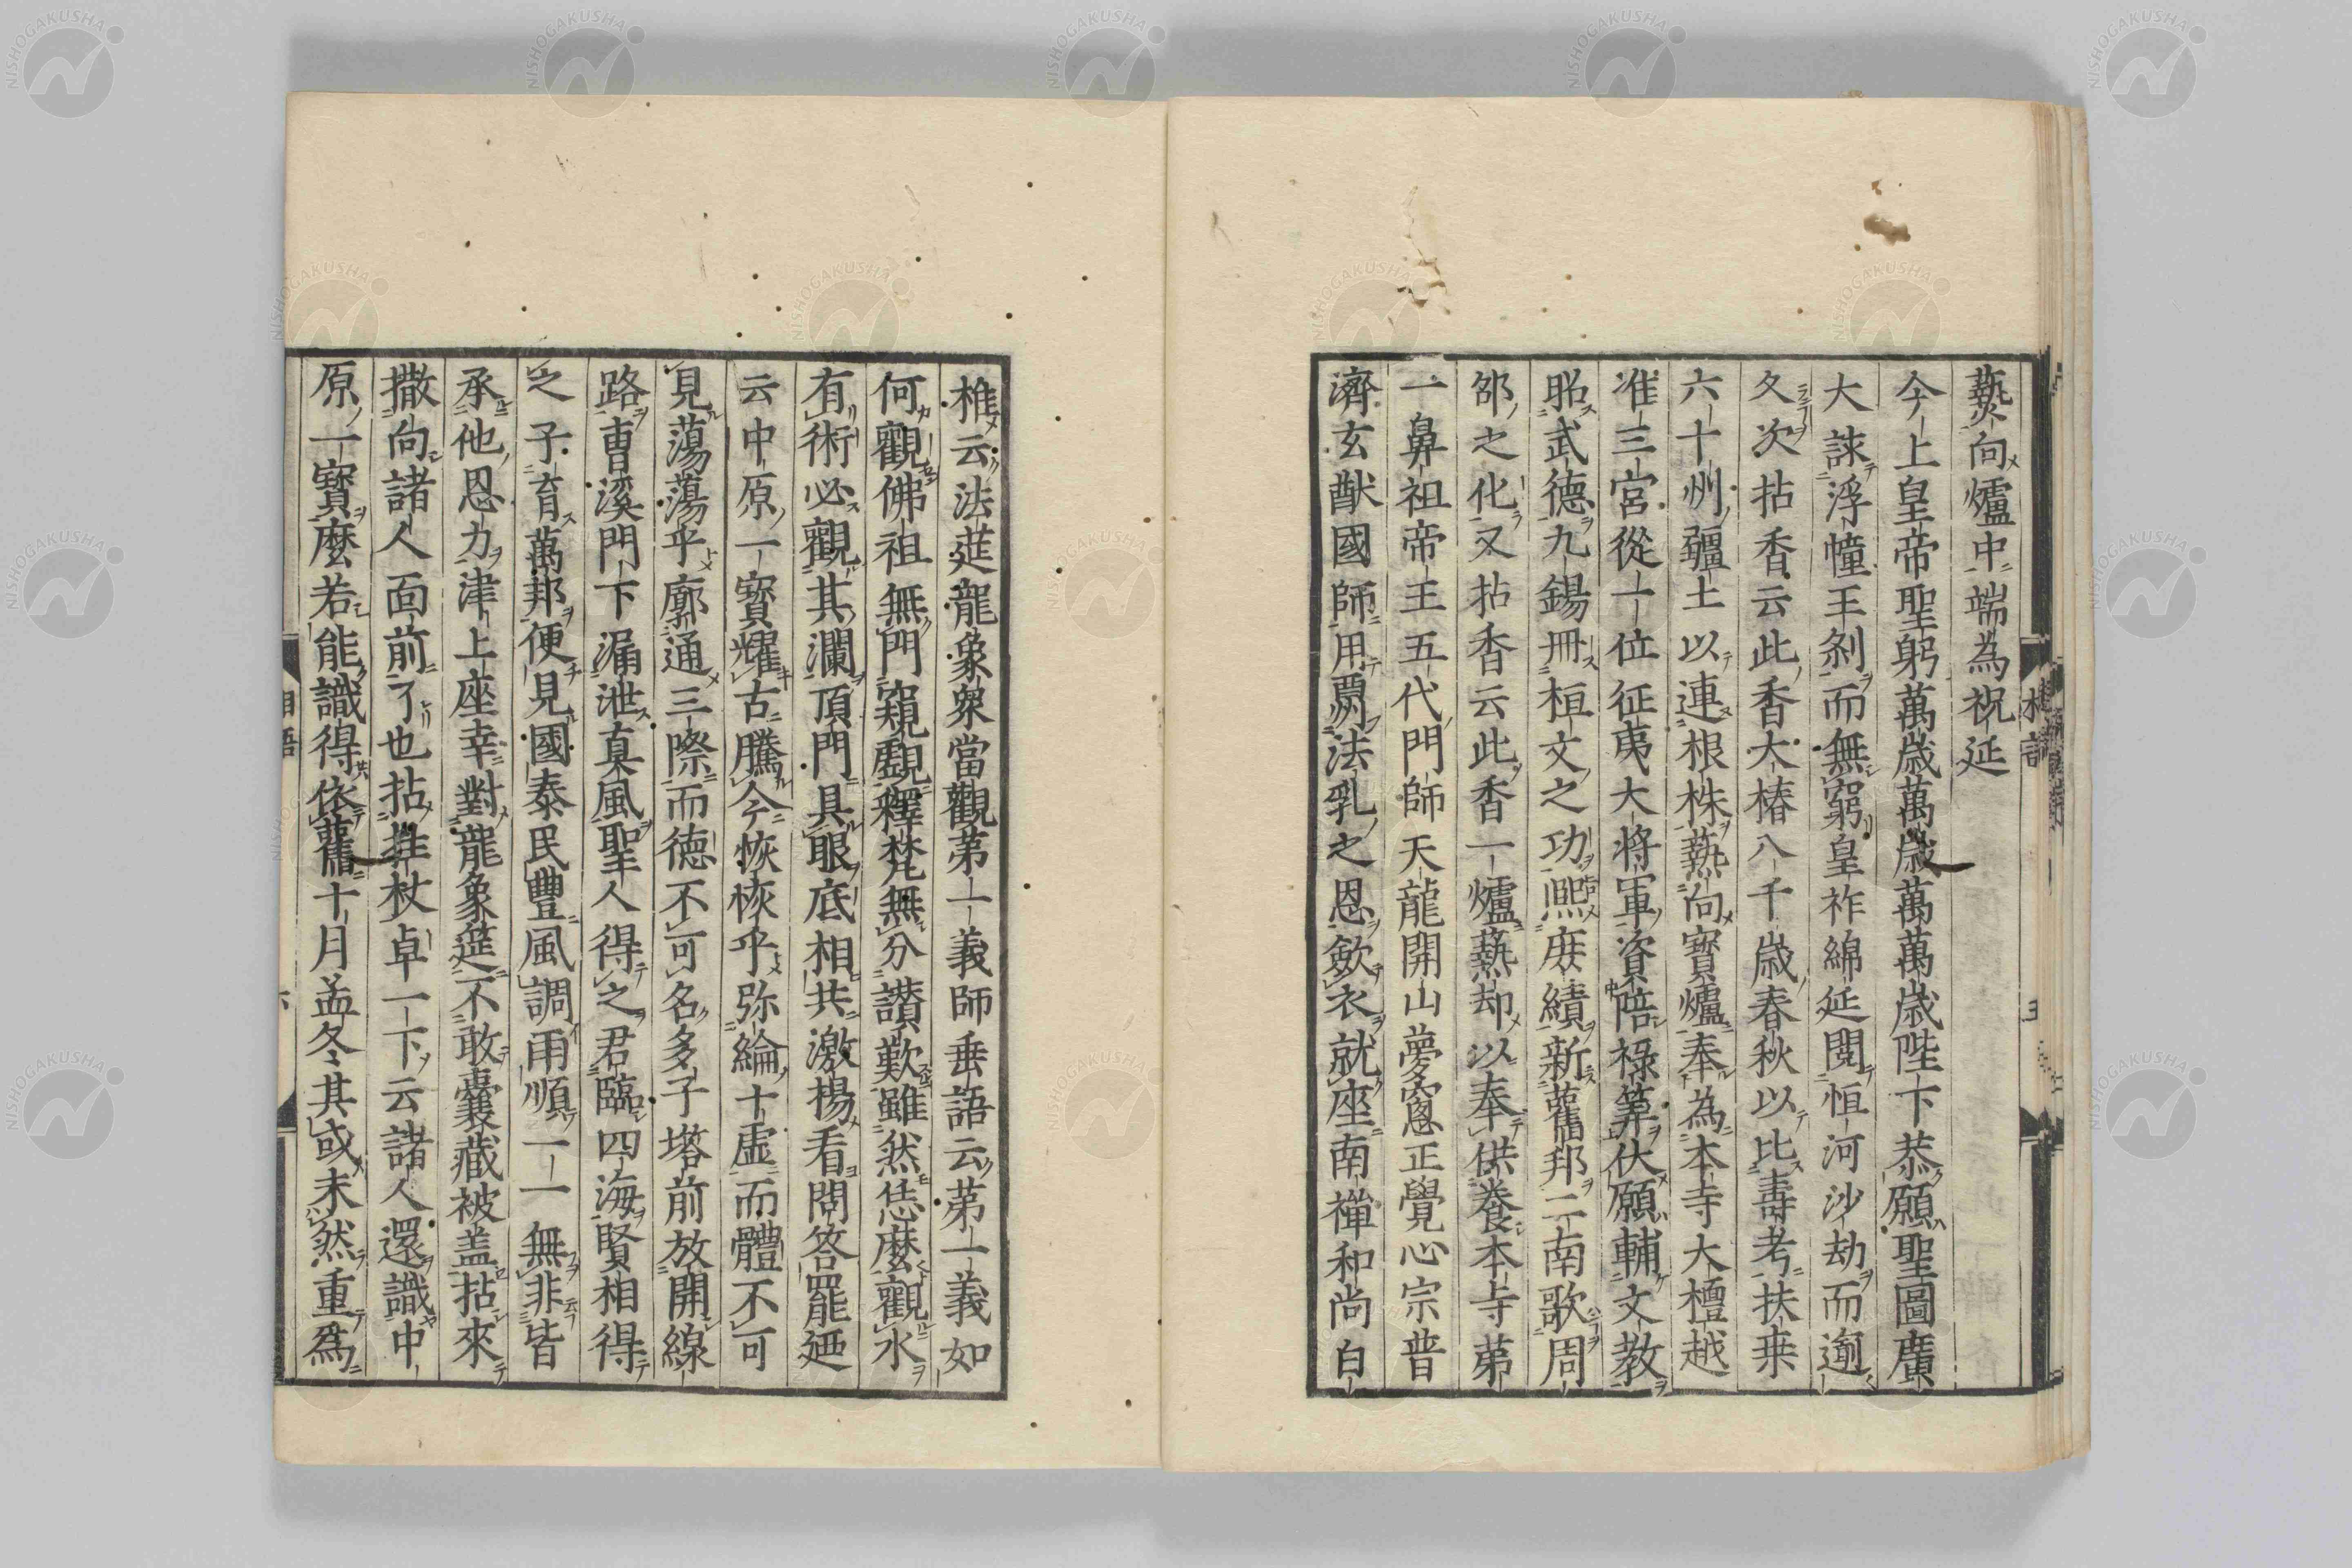 爇向爐中端為祝延
今上皇帝聖躬萬歲萬歲萬萬歲陛下恭願聖圖廣
大諫浮幢王刹而無窮皇祚綿延閱恒河沙劫而逾
久次拈香云此香大椿八千歲春秋以比壽考扶桒
六十州疆土以連根株爇向寶爐奉為本寺大檀越
准三宮從一位征夷大將軍資陪祿筭伏願輔文教
昭武德九錫冊桓文之功熙庶績新舊邦二南歌周
邵之化又拈香云此香一爐爇却以奉供養本寺第
一鼻祖帝王五代門師天龍開山夢窓正覺心宗普
濟玄猷國師用酬法乳之恩斂衣就座南禪和尚白
椎云法莚龍象衆當觀第一義師垂語云第一義如
何觀佛祖無門窺覷釋梵無分讃歎雖然恁麼觀水
有術必觀其瀾頂門具眼底相共激楊看問答罷廼
云中原一寶耀古騰今恢恢乎弥綸十虛而體不可
見蕩蕩乎廓通三際而德不可名多子塔前放開線
路曹溪門下漏泄真風聖人得之君臨四海賢相得
之子育萬邦便見國泰民豐風調雨順一一無非皆
承他恩力津上座幸對龍象筵不敢囊藏被盖拈來
撒向諸人面前了也拈拄杖卓一下云諸人還識中
原一寶麼若能識得依舊十月孟冬其或未然重爲